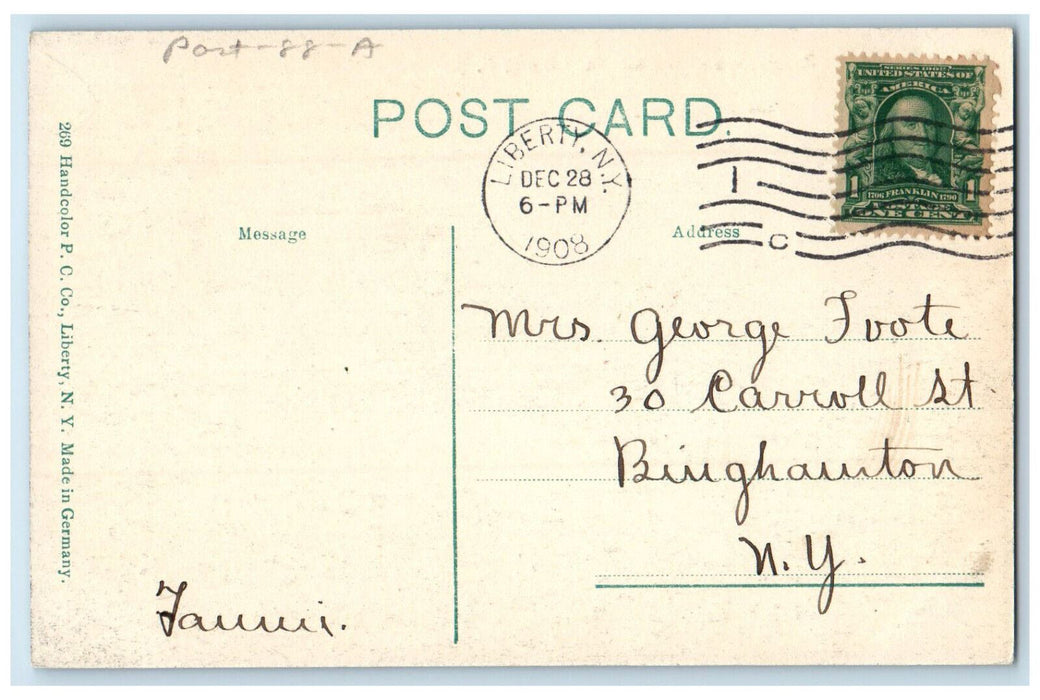 Post-88-A
POST CARD.
SERIES 1902
UNITED STATES OF
AMERICA
1 1
1706 FRANKLIN 1790
POSTAGE
ONE CENT
LIBERTY, N.Y.
DEC 28
6-PM
1908
1
C
Message
Address
Mrs. George Foote
30 Carroll St
Binghamton
N.Y.
Fannie.
269 Handcolor P. C. Co., Liberty, N. Y. Made in Germany.